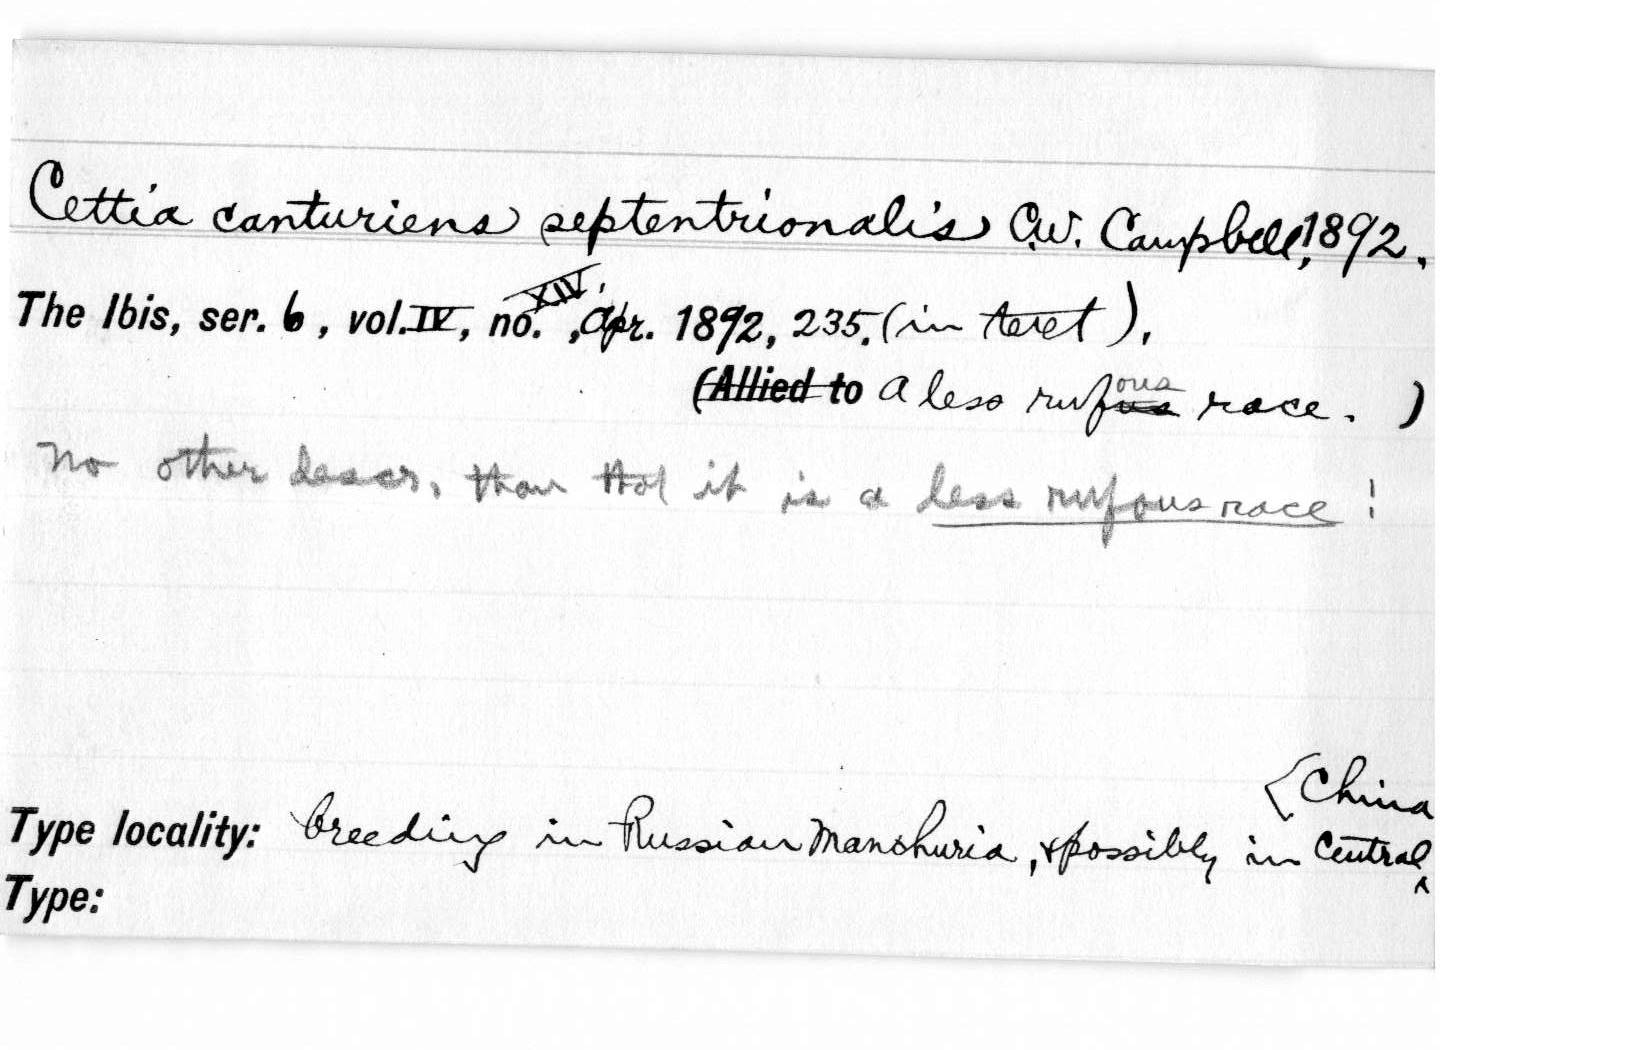 Cettia canturiens septentrionalis C.W. Campbell, 1892.
The Ibis, ser. 6, vol. IV, no. XIV, Apr. 1892, 235. (in text).
(Allied to A less rufous race. )
No other descr. than that it is a less rufous race!
Type locality: breeding in Russian Manchuria, & possibly in Central China
Type: